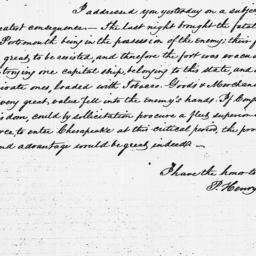 I addressed you yesterday on a subje
eatest consequence — The last night brought the fatal
Portsmouth being in the possession of the enemy; their f
great, to be resisted, and therefore the fort was evacua
stroying one capital ship, belonging to this state, and a
rivate ones, loaded with Tobacco. Goods & Merchan
very great, value fell into the enemy's hands. If Cong
isdom, could by solicitation procure a fleet superior
rce to enter Chesapeake at this critical period, the pro
and advantage would be great indeed —
I have the honor to
P. Henry